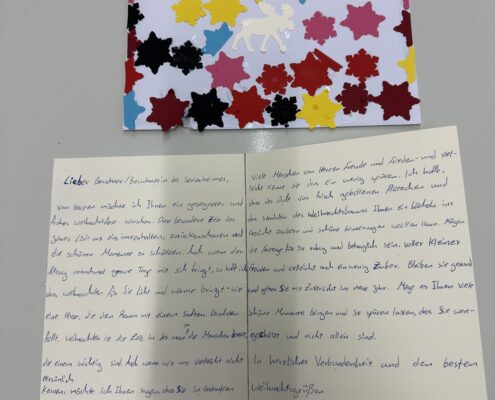 Lieber Bewohner/Bewohnerin des Seniorheimes,
von Herzen möchte ich Ihnen ein gesegnetes und
frohes Weihnachtsfest wünschen. Diese besondere Zeit des
Jahres lädt uns ein innezuhalten, zurückzuschauen und
die schönen Momente zu schätzen. Auch wenn der
Alltag manchmal graue Tage mit sich bringt, so hoffe ich
dass Weihnachten für Sie Licht und Wärme bringt - wie
eine Kerze, die den Raum mit einem sanften Leuchten
füllt. Weihnachten ist die Zeit, in der man an die Menschen denkt,
die einem wichtig sind. Auch wenn wir uns vielleicht nicht
persönlich
kennen, möchte ich Ihnen sagen, dass Sie in
viele Menschen von Herzen Freude und Frieden - und viel-
leicht können Sie das ein wenig spüren. Ich hoffe,
dass der Duft von frisch gebackenen Plätzchen und
das strahlen des Weihnachtsbaums Ihnen ein Lächeln ins
Gesicht zaubern und schöne Erinnerungen wecken kann. Mögen
die Feiertage für Sie ruhig und behaglich sein, voller kleiner
Freuden und vielleicht auch ein wenig Zauber. Bleiben sie gesund
und gehen Sie mit Zuversicht ins neue Jahr. Möge es Ihnen viele
schöne Momente bringen und sie spüren lassen, dass Sie wert-
geschätzt und nicht allein sind.
In herzlicher Verbundenheit und den besten
Weihnachtsgrüßen